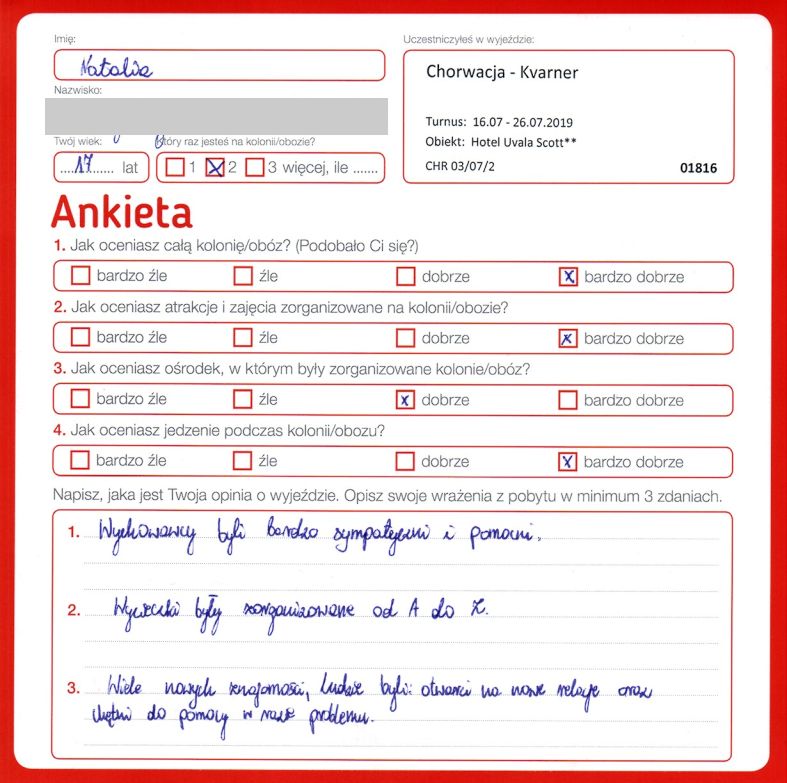 Imię:
Uczestniczyłeś w wyjeździe:
Natalia
Chorwacja - Kvarner
Nazwisko:
Turnus: 16.07 - 26.07.2019
Obiekt: Hotel Uvala Scott**
CHR 03/07/2
01816
Twój wiek:
Który raz jesteś na kolonii/obozie?
....17...... lat
1 2 3 więcej, ile .......
Ankieta
1. Jak oceniasz całą kolonię/obóz? (Podobało Ci się?)
bardzo źle źle dobrze x bardzo dobrze
2. Jak oceniasz atrakcje i zajęcia zorganizowane na kolonii/obozie?
bardzo źle źle dobrze x bardzo dobrze
3. Jak oceniasz ośrodek, w którym były zorganizowane kolonie/obóz?
bardzo źle źle x dobrze bardzo dobrze
4. Jak oceniasz jedzenie podczas kolonii/obozu?
bardzo źle źle dobrze x bardzo dobrze
Napisz, jaka jest Twoja opinia o wyjeździe. Opisz swoje wrażenia z pobytu w minimum 3 zdaniach.
1. Wychowawcy byli bardzo sympatyczni i pomocni.
2. Wycieczki były zorganizowane od A do Z.
3. Wiele nowych znajomości, ludzie byli otwarci na nowe relacje oraz
chętni do pomocy w razie problemu.